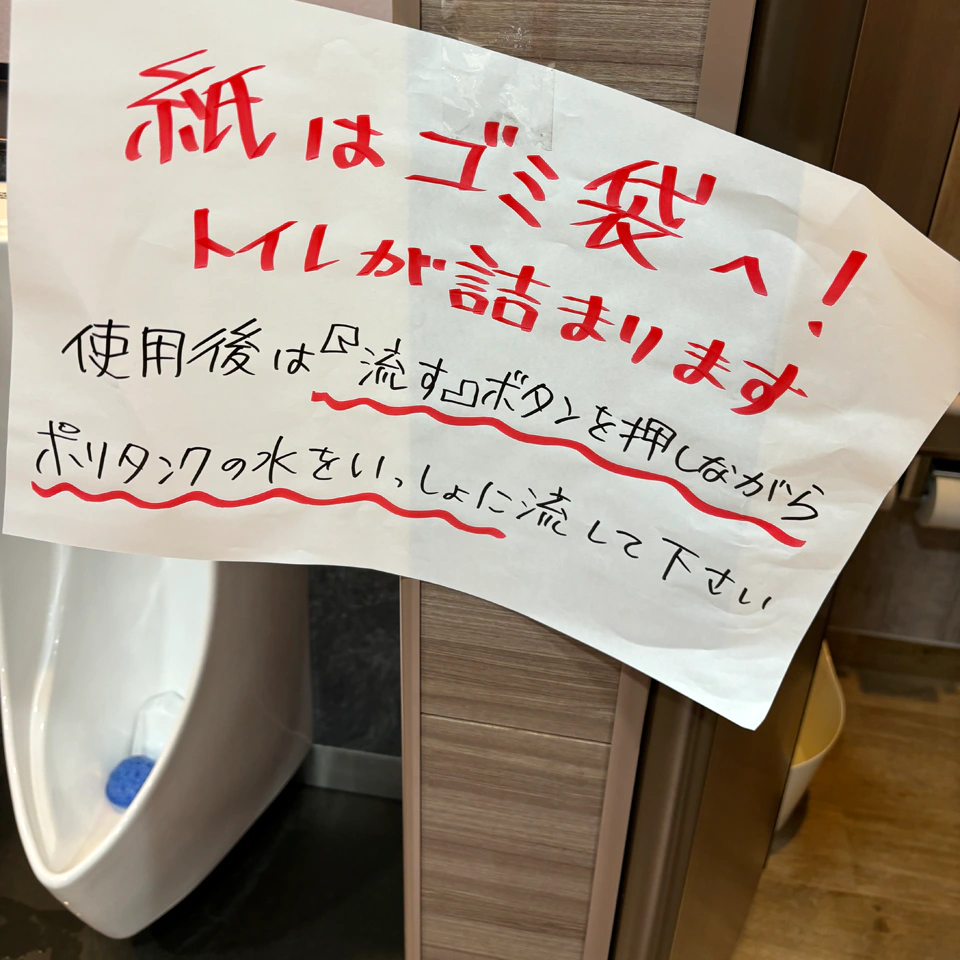 紙はゴミ袋へ!
トイレが詰まります
使用後は『流す』ボタンを押しながら
ポリタンクの水をいっしょに流して下さい